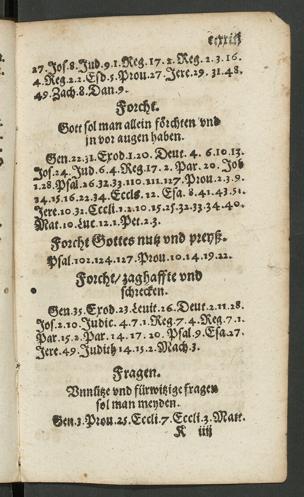 27.Jos.8.Jud.9.1.Reg.17.2.Reg.2.3.16.
4.Reg.2.2.Esd.5.Prou.27.Jere.29.31.48.
49.Zach.8.Dan.9.
Forcht.
Gott sol man allein förchten vnd
in vor augen haben.
Gen.22.31.Exod.1.20.Deut.4.6.10.13.
Jos.24.Jud.6.4.Reg.17.2.Par.20.Job
1.28.Psal.26.32.33.110.111.127.Prou.2.3.9.
14.15.16.22.34.Eccls.12.Esa.8.41.43.51.
Jere.10.32.Eccli.1.2.10.15.25.32.33.34.40.
Mat.10.Luc.12.1.Pet.2.3.
Forcht Gottes nutz vnd preyß.
Psal.102.124.127.Prou.10.14.19.22.
Forcht/ zaghaffte vnd
schrecken.
Gen.35.Exod.23.Leuit.26.Deut.2.11.28.
Jos.2.10.Judic.4.7.1.Reg.7.4.Reg.7.1.
Par.15.2.Par.14.17.20.Psal.9.Esa.27.
Jere.49.Judith 14.15.2.Mach.3.
Fragen.
Vnnütze vnd fürwitzige fragen
sol man meyden.
Gen.3.Prou.25.Eccli.7.Eccli.3.Matt.
K iiij